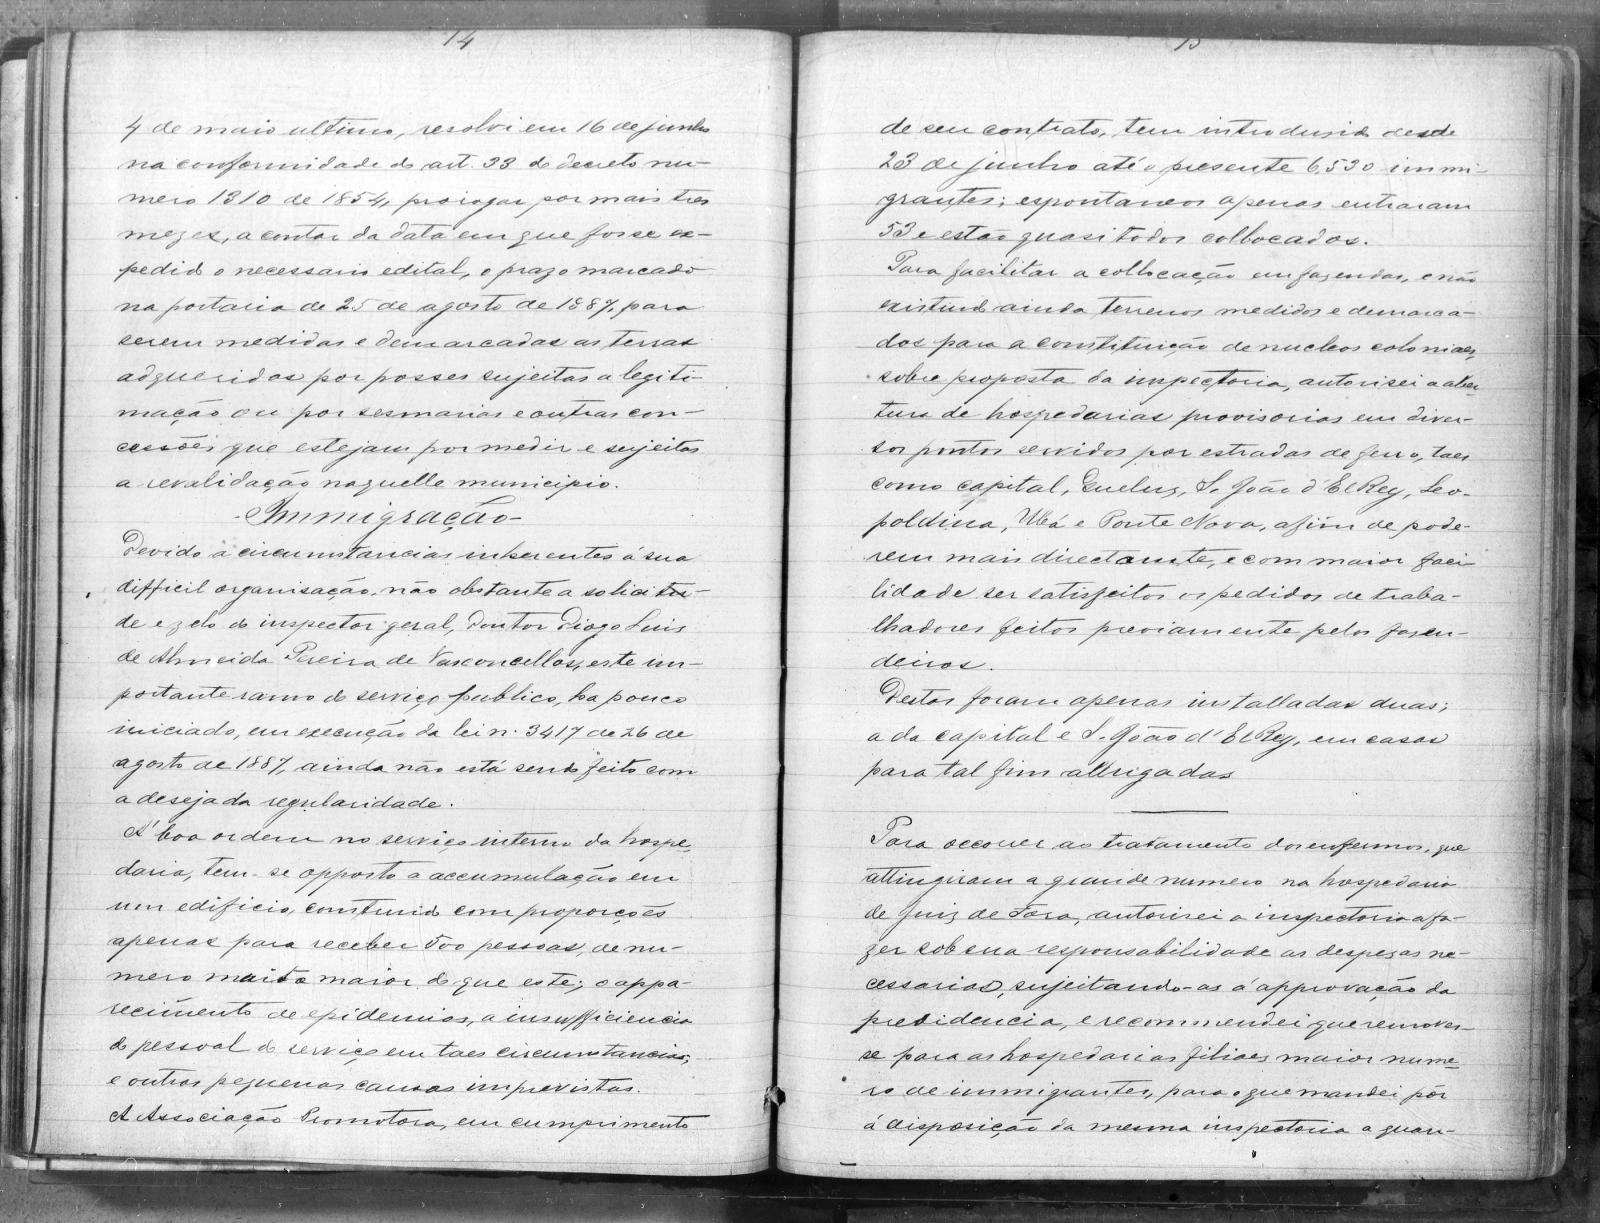 14
4 de maio ultimo, resolvi em 16 de junho
na conformidade do art. 33 do decreto nu-
mero 1310 de 1854, prorogar por mais tres
mezes, a contar da data em que fosse ex-
pedido o necessario edital, o prazo marcado
na portaria de 25 de agosto de 1887, para
serem medidas e demarcadas as terras
adqueridas por posses sujeitas a legiti-
mação ou por sesmarias e outras con-
cessões que estejam por medir e sujeitas
a revalidação naquelle municipio.
- Immigração -
Devido a circumstancias inherentes á sua
difficil organisação, não obstante a solicitu-
de e zelo do inspector geral, Doutor Diogo Luis
de Almeida Pereira de Vasconcellos, este im-
portante ramo do serviço publico, ha pouco
iniciado, em execução da lei n. 3417 de 26 de
agosto de 1887, ainda não está sendo feito com
a desejada regularidade.
A' boa ordem no serviço interno da hospe-
daria, tem-se opposto a accumulação em
um edificio, construido com proporções
apenas para receber 500 pessoas, de nu-
mero muito maior do que este; o appa-
recimento de epidemias, a insufficiencia
do pessoal do serviço em taes circumstancias;
e outras pequenas causas imprevistas.
A Associação Promotora, em cumprimento
15
de seu contrato, tem introdusido desde
23 de junho até o presente 6,530 immi-
grantes; espontaneos apenas entraram
53 e estão quasi todos collocados.
Para facilitar a collocação em fazendas, e não
existindo ainda terrenos medidos e demarca-
dos para a constituição de nucleos coloniaes,
sobre proposta da inspectoria, autorisei a aber-
tura de hospedarias provisorias em diver-
sos pontos servidos por estradas de ferro, taes
como capital, Queluz, S. João d'El Rey, Leo-
poldina, Ubá e Ponte Nova, afim de pode-
rem mais directamente, e com maior faci-
lidade ser satisfeitos os pedidos de traba-
lhadores feitos previamente pelos fazen-
deiros.
Destas foram apenas installadas duas;
a da capital e S. João d'El Rey, em casas
para tal fim allugadas
Para occorrer ao tratamento dos enfermos, que
attingiram a grande numero na hospedaria
de Juiz de Fora, autorisei a inspectoria a fa-
zer sob sua responsabilidade as despezas ne-
cessarias, sujeitando-as á approvação da
presidencia, e recommendei que remover-
se para as hospedarias filiaes maior nume-
ro de immigrantes, para o que mandei pôr
á disposição da mesma inspectoria a quan-